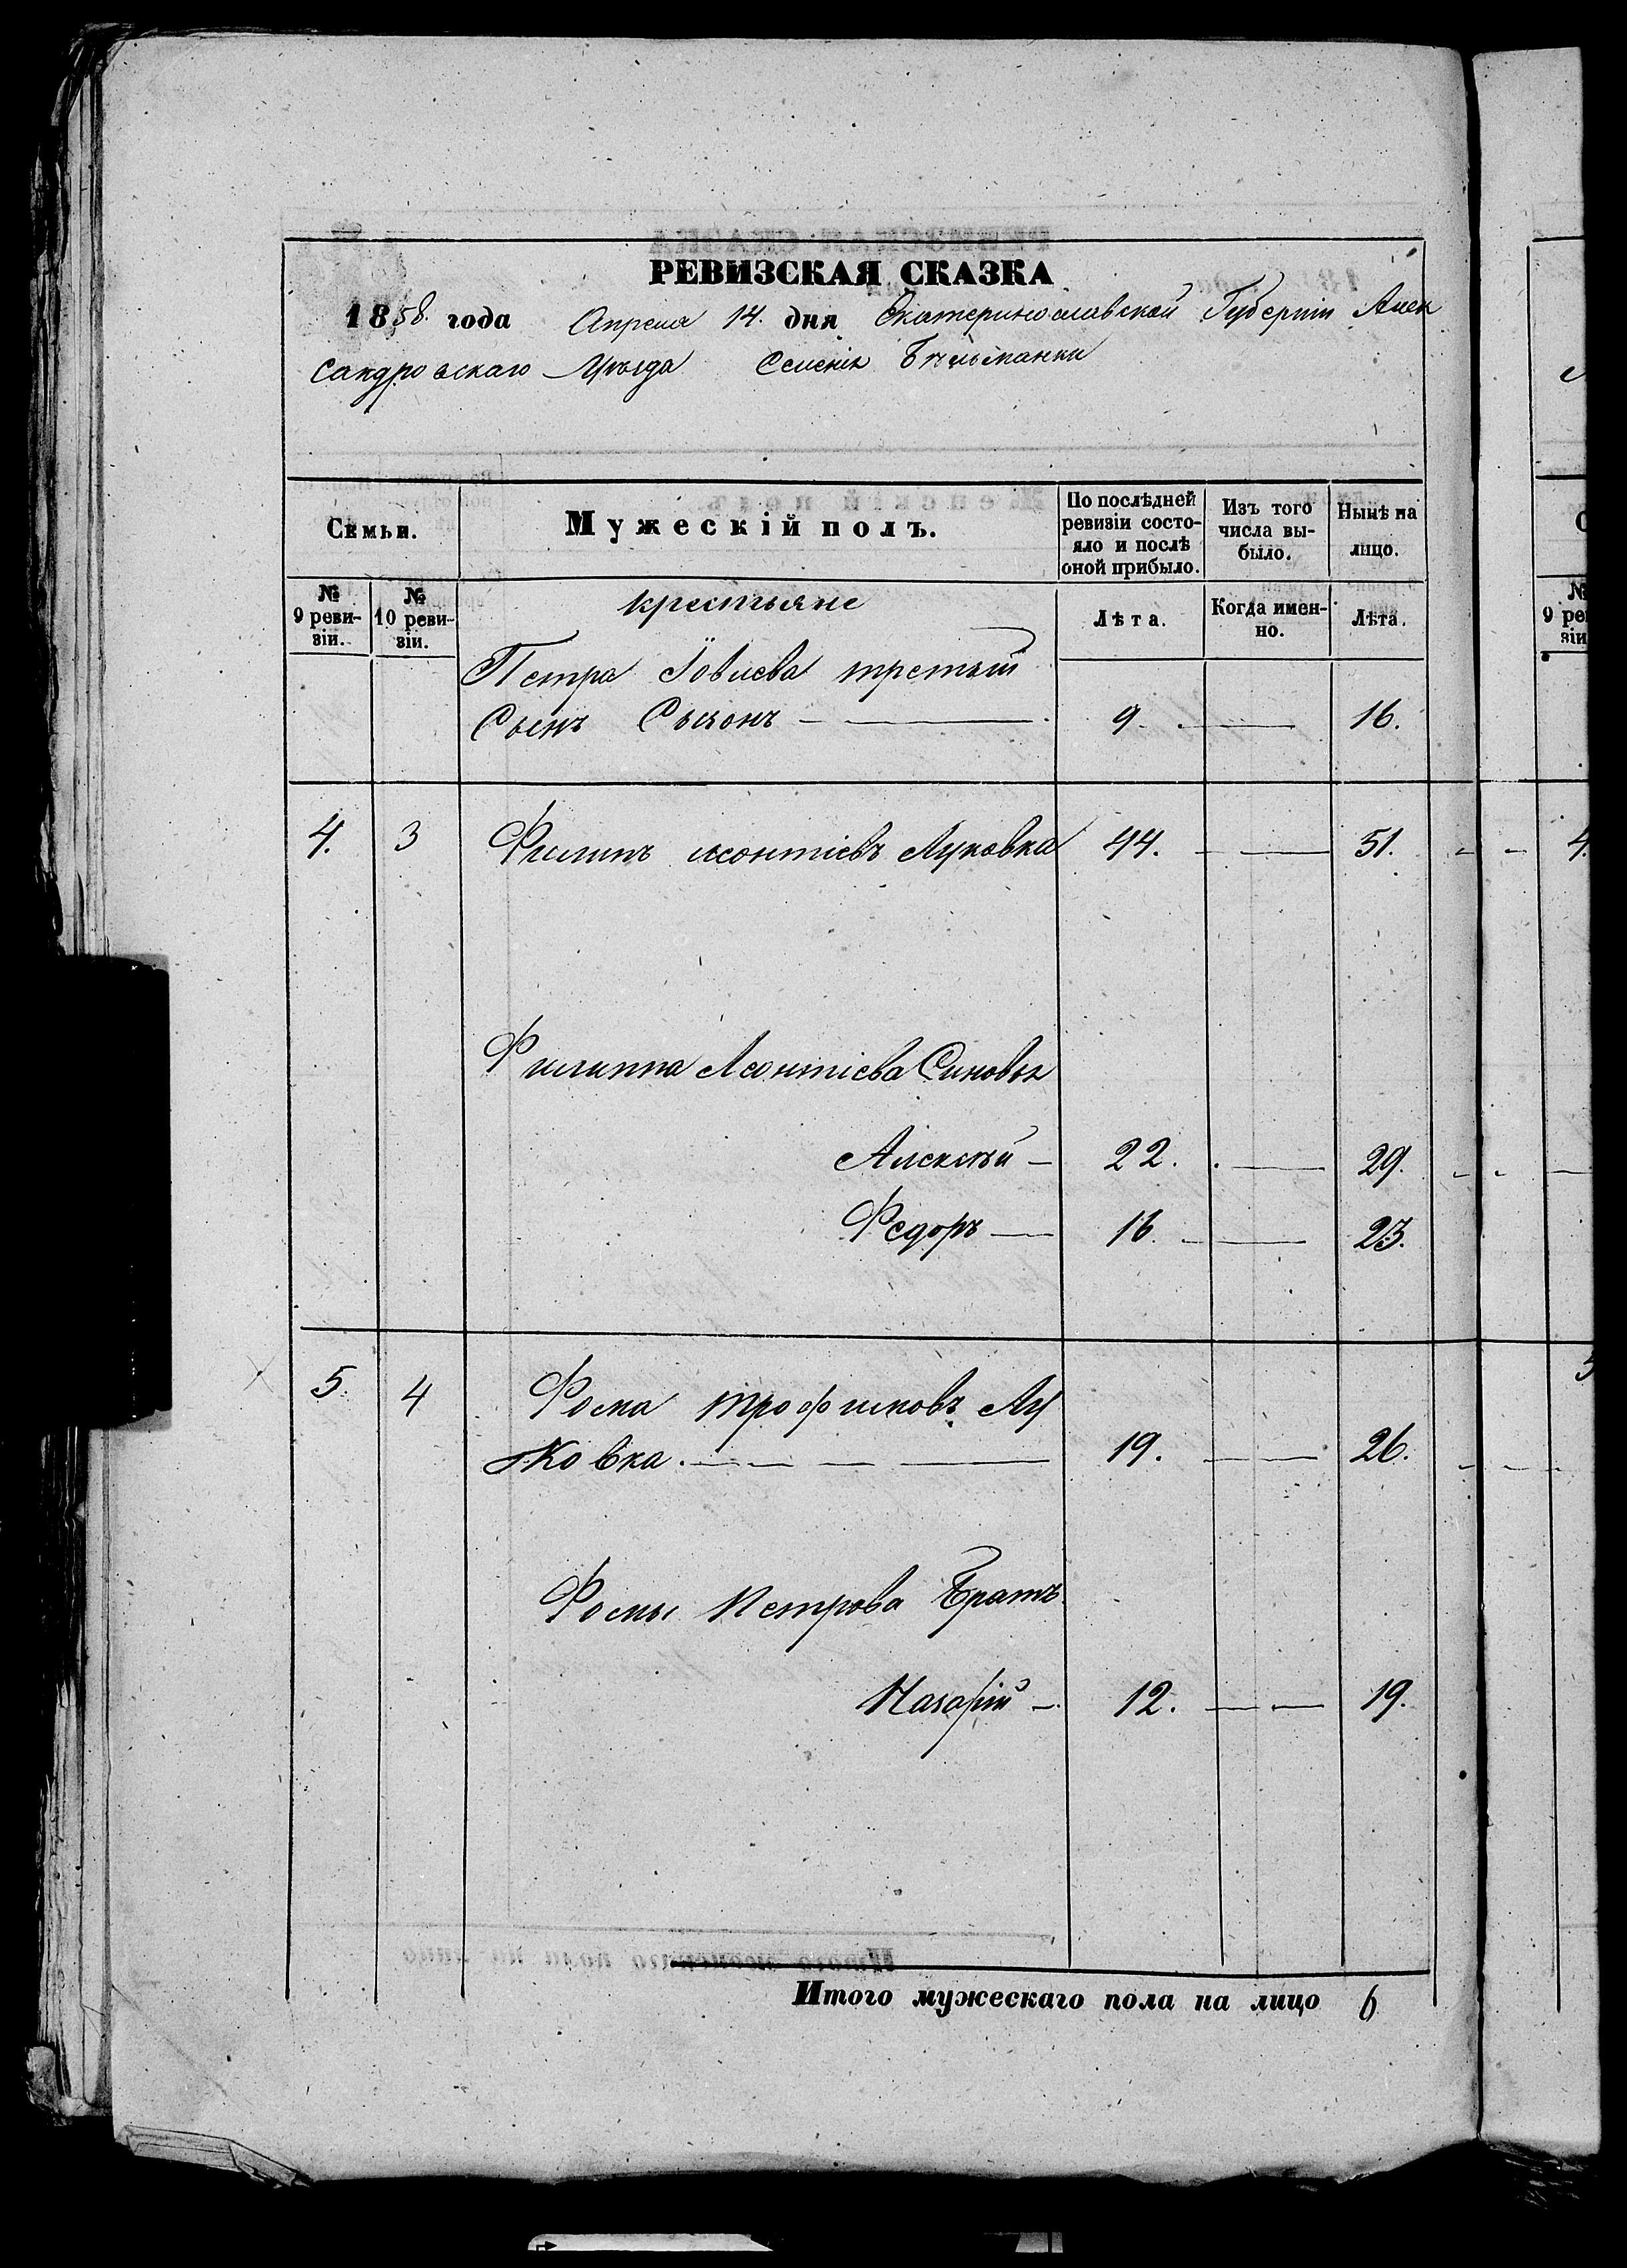 РЕВИЗСКАЯ СКАЗКА
1858. года Апреля 14. дня Екатеринославской Губерніи Алек
сандровскаго Уѣзда Селенія Бѣльманки
Семьи.
Мужескій полъ.
По послѣдней ревизіи состо-
яло и послѣ оной прибыло.
Изъ того числа вы-
было.
Нынѣ на лицо.
№ 9 реви-
зіи.
№ 10 реви-
зіи.
крестьяне
Лѣта.
Когда имен-
но.
Лѣта.
Петра Іовлева третій
Сынъ Сысонъ — 9. — 16.
4. 3 Филипъ леонтіевъ Луковка 44. — 51.
Филиппа Леонтіева Синовья
Алексѣй — 22. — 29.
Федоръ — 16. — 23.
5. 4 Фома трофимовъ Лу
ковка. — 19. — 26.
Фомы Петрова Братъ
Назарій — 12. — 19.
Итого мужескаго пола на лицо 6